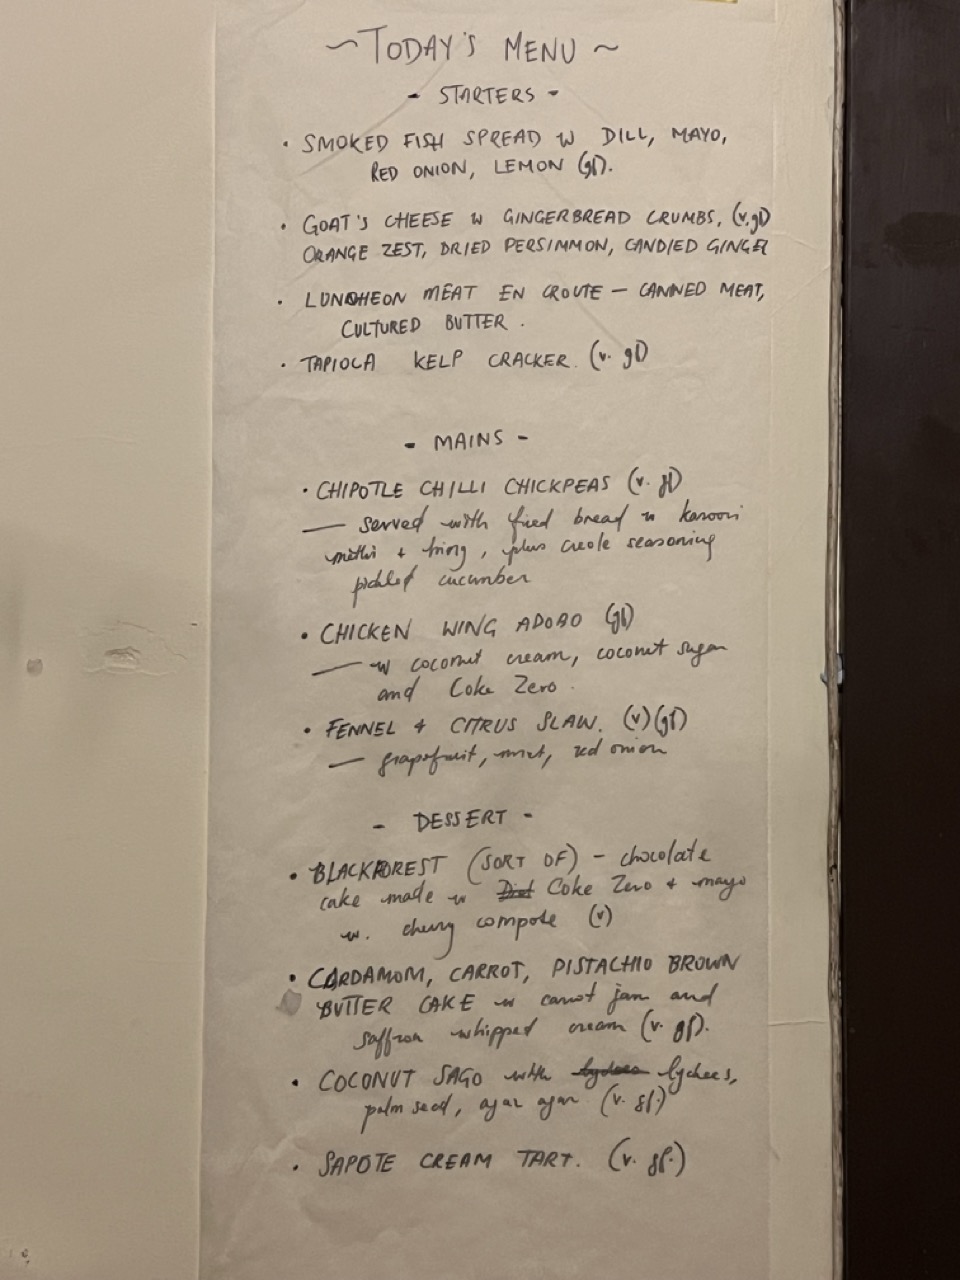 ~TODAY'S MENU~
- STARTERS -
• SMOKED FISH SPREAD W DILL, MAYO,
RED ONION, LEMON (gf).
• GOAT'S CHEESE W GINGERBREAD CRUMBS, (v.gf)
ORANGE ZEST, DRIED PERSIMMON, CANDIED GINGER
• LUNCHEON MEAT EN CROUTE - CANNED MEAT,
CULTURED BUTTER.
• TAPIOCA KELP CRACKER. (v. gf)
- MAINS -
• CHIPOTLE CHILLI CHICKPEAS (v. gf)
— served with fried bread w kasoori
methi + hing, plus creole seasoning
pickled cucumber
• CHICKEN WING ADOBO (gf)
— w coconut cream, coconut sugar
and Coke Zero.
• FENNEL + CITRUS SLAW. (v)(gf)
— grapefruit, mint, red onion
- DESSERT -
• BLACKFOREST (SORT OF) - chocolate
cake made w Coke Zero + mayo
w. cherry compote (v)
• CARDAMOM, CARROT, PISTACHIO BROWN
BUTTER CAKE w carrot jam and
saffron whipped cream (v. gf).
• COCONUT SAGO with lychees,
palm seed, agar agar (v. gf.)
• SAPOTE CREAM TART. (v. gf.)